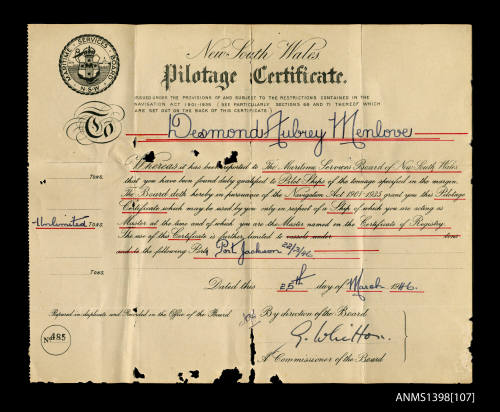 MARITIME · SERVICES · BOARD · N·S·W·
New South Wales.
Pilotage Certificate.
ISSUED UNDER THE PROVISIONS OF AND SUBJECT TO THE RESTRICTIONS CONTAINED IN THE
NAVIGATION ACT 1901-1935 (SEE PARTICULARLY SECTIONS 69 AND 71 THEREOF WHICH
ARE SET OUT ON THE BACK OF THIS CERTIFICATE)
To Desmond Aubrey Menlove
Whereas it has been reported to The Maritime Services Board of New South Wales
Tons.
that you have been found duly qualified to Pilot Ships of the tonnage specified in the margin.
The Board doth hereby in pursuance of the Navigation Act 1901-1935 grant you this Pilotage
Certificate which may be used by you only in respect of a Ship of which you are acting as
Unlimited Tons.
Master at the time and of which you are the Master named in the Certificate of Registry.
The use of this Certificate is further limited to vessels under tons
and to the following Port Port Jackson 22/3/46
Tons.
Dated this 25th day of March 1946.
Prepared in duplicate and Recorded in the Office of the Board
By direction of the Board
No 485
G. Whitton.
A Commissioner of the Board
ANMS1398[107]